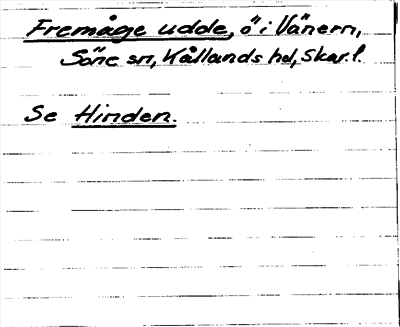 Fremåge udde, ö i Vänern,
Söne sn, Kållands hd, Skar. l.
Se Hinden.